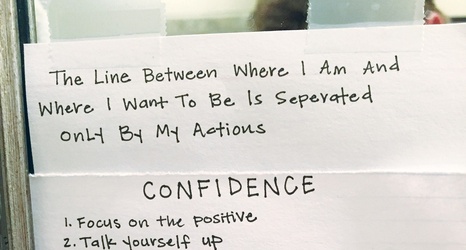 The Line Between Where I Am And
Where I Want To Be Is Seperated
only By My Actions
CONFIDENCE
1. Focus on the positive
2. Talk yourself up